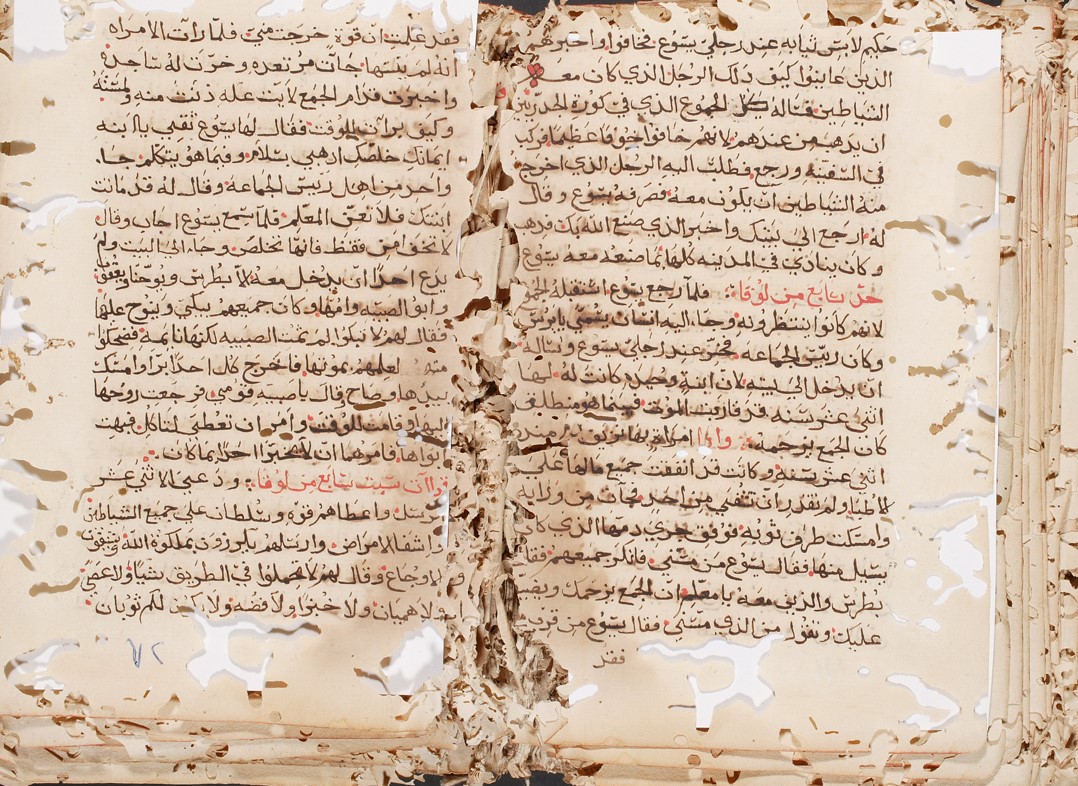 حكيم لابس ثيابه عند رجلي يسوع فخافوا واخبرهم
الذين عاينوا كيف ذلك الرجل الذي كان معه
الشياطين فتاله كل الجموع الذي في كورة الجدريين
ان يذهب من عندهم لانهم خافوا خوفا عظيما فركب
في السفينة ورجع فطلب اليه الرجل الذي اخرج
منه الشياطين ان يكون معه فصرفه يسوع وقال
له ارجع الي بيتك واخبر الذي صنع الله بك فذهب
وكان ينادي في المدينه كلها بما صنعه معه يسوع
حد سابع من لوقا فلما رجع يسوع استقبله الجمو
لانهم كانوا ينتظرونه وجاء اليه انسان يسمي يايرس
وكان ريس الجماعه فخر عند رجلي يسوع وساله
ان يدخل الي بيته لان ابنة وحيده كانت له لها
اثني عشر سنه قد قاربت الموت فيما هو منطلق
كان الجمع يزحمه واذا امراة بها نزيف
اثني عشر سنه وكانت قد انفقت جميع مالها علي
الاطبا ولم تقدر ان تشفي من احد فجات من ورايه
وامسكت طرف ثوبه فوقف جري دمها الذي كان
يسيل منها فقال يسوع من مسني فانكر جميعهم فقال
بطرس والذين معه يا معلم ان الجمع يزحمك ويضيـ
عليك وتقول من الذي مسني فقال يسوع من قرب
فقد
فقد علمت ان قوة خرجت مني فلما رات الامراه
انه لم ينسها جات مرتعده وخرت له ساجده
واخبرت قدام الجمع لايت عله دنت منه ولمسته
وكيف برات للوقت فقال لها يسوع ثقي يا ابنه
ايمانك خلصك اذهبي بسلام وفيما هو يتكلم جا
واحد من اهل ريس الجماعه وقال له قد ماتت
ابنتك فلا تعن المعلم فلما سمع يسوع اجاب وقال
لا تخف امن فقط فانها تخلص وجاء الي البيت ولم
يدع احدا ان يدخل معه الا بطرس ويوحنا ويعقوب
وابو الصبيه وامها وكان جميعهم يبكي وينوح عليها
فقال لهم لا تبكوا لم تمت الصبيه لكنها نايمه فضحكوا
منه لعلمهم بموتها فاخرج كل احدا برا وامسك
بيدها وصاح قال يا صبيه قومي فرجعت روحها
اليها وقامت للوقت وامر ان تعطي لتاكل فبهت
ابواها فامرهما ان لا يخبروا احدا بما كان
قران سبت سابع من لوقا ودعي الاثني عشر
الرسل واعطاهم قوه وسلطان علي جميع الشياطين
واشفا الامراض وارسلهم يكرزون بملكوة الله ويشفون
الاوجاع وقال لهم لا تحملوا في الطريق شيا ولا عصي
ولا هميان ولا خبز ولا فضه ولا يكن لكم ثوبان
٧٢